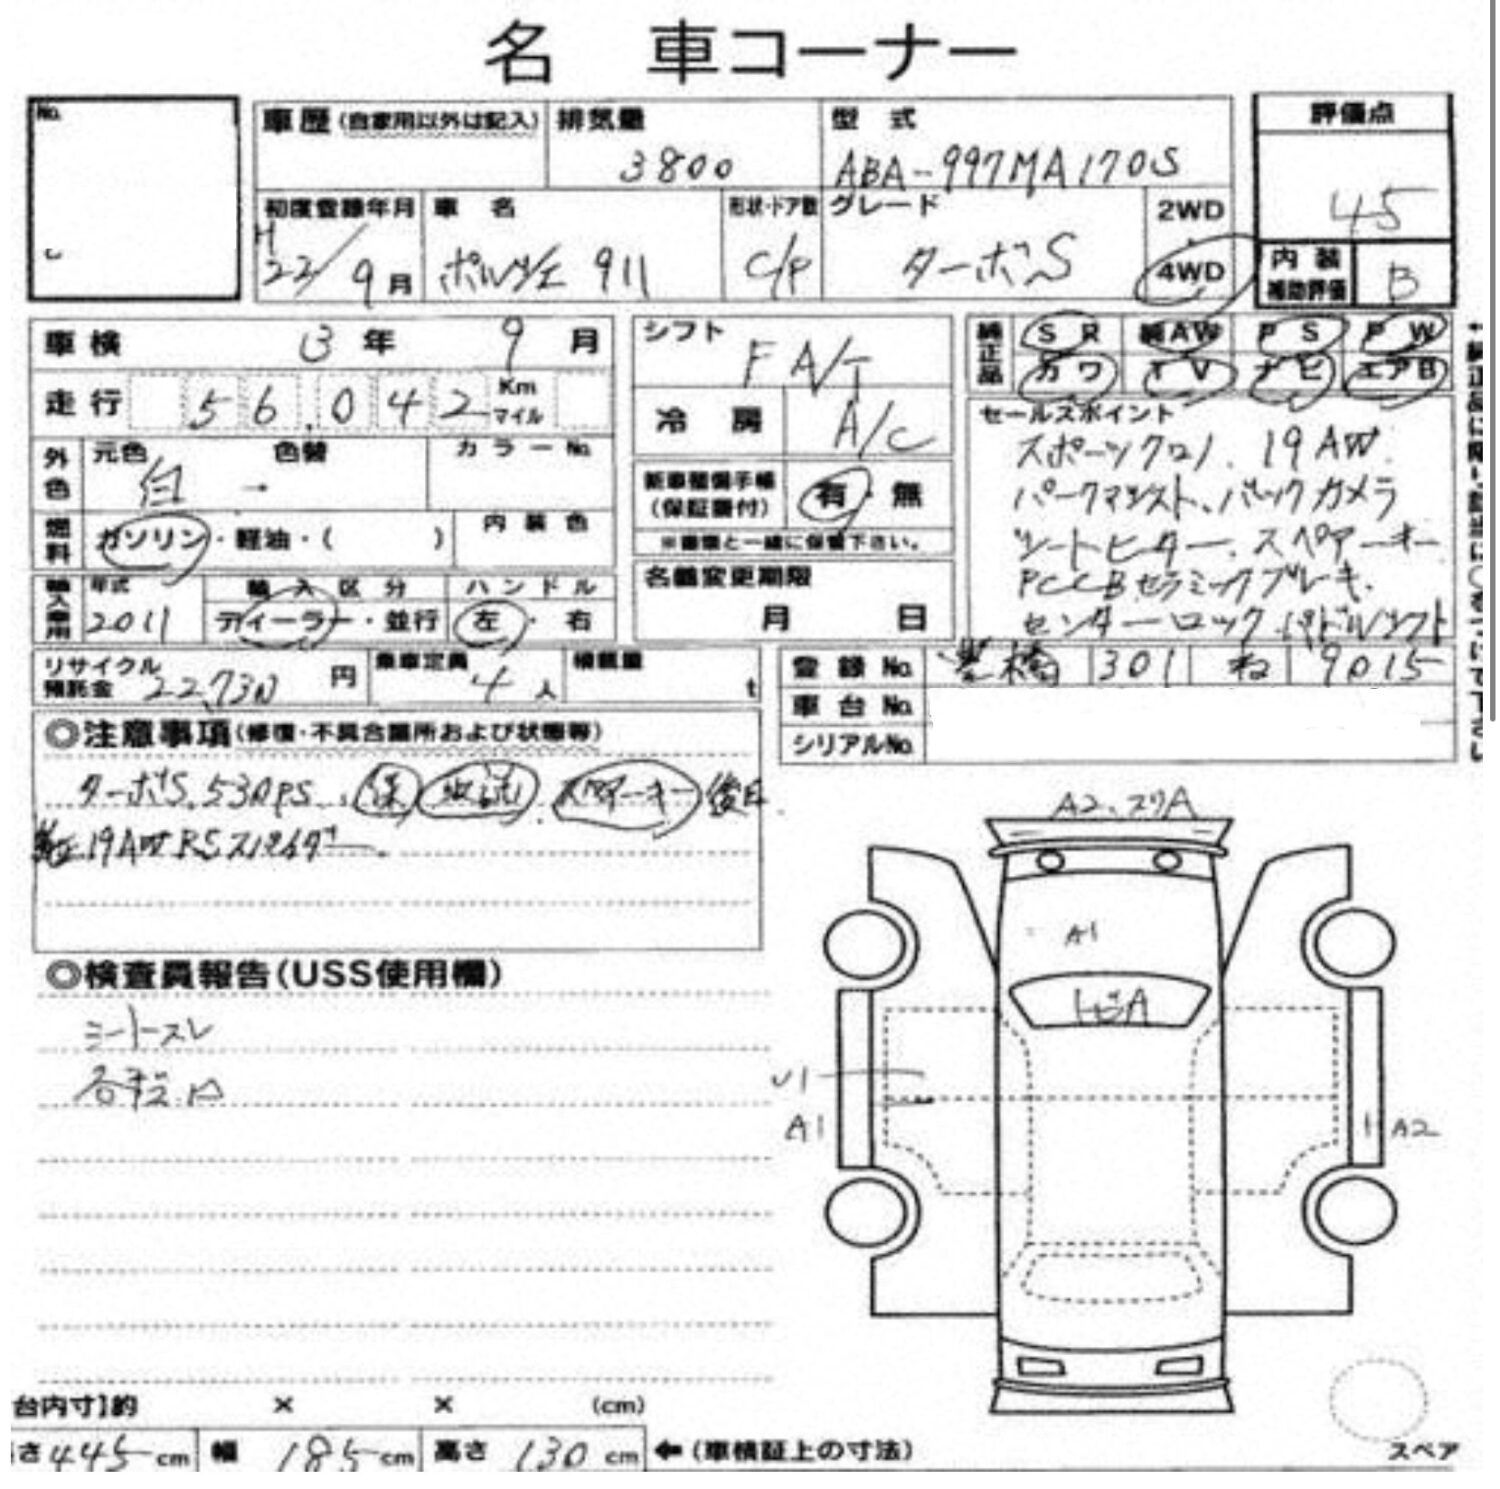 名 車コーナー
No.
車歴(自家用以外は記入)
排気量
3800
型 式
ABA-997MA170S
評価点
45
初度登録年月
H22/9月
車 名
ポルシェ 911
形状・ドア数
C/P
グレード
ターボS
2WD
4WD
内装補助評価
B
車検 13年 9月
走行 56,042 Km マイル
外色
元色
白
→
色替
カラーNo.
燃料
ガソリン・軽油・( )
内装色
輸入車用
年式
2011
輸入区分
ディーラー・並行
ハンドル
左・右
シフト
F A/T
冷房
A/C
新車整備手帳
(保証書付)
有・無
※書類と一緒に保管下さい。
名義変更期限
月 日
純正品
SR 純AW PS PW
カワ TV ナビ エアB
←純正品に限り該当に○をつけて下さい
セールスポイント
スポーツクロノ、19AW
パークアシスト、バックカメラ
シートヒーター、スペアーキー
PCCBセラミックブレーキ、
センターロック、パドルシフト
リサイクル預託金 22,730円
乗車定員 4人
積載量 t
登録No. 豊橋 301 ね 9015
車台No.
シリアルNo.
◎注意事項(修復・不具合箇所および状態等)
ターボS、530PS、保 取説 スペアーキー 後日
純正19AW RSスパイダー
◎検査員報告(USS使用欄)
シートスレ
各キズ、凹
A2、スリA
A1
トビA
U1
A1
A2
台内寸]約 × × (cm)
さ445cm 幅 185cm 高さ 130cm ←(車検証上の寸法)
スペア